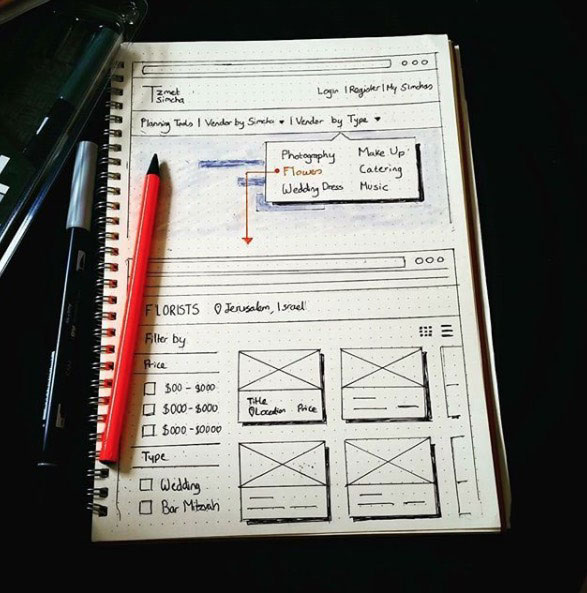 Tzmet
Simcha
Login | Register | My Simchas
Planning Tools | Vendor by Simcha ♥ | Vendor by Type ♥
Photography Make Up
Flowers Catering
Wedding Dress Music
FLORISTS Jerusalem, Israel
Filter by
Price
$00 - $000
$000 - $000
$000 - $0000
Type
Wedding
Bar Mitzvah
Title
Location Price